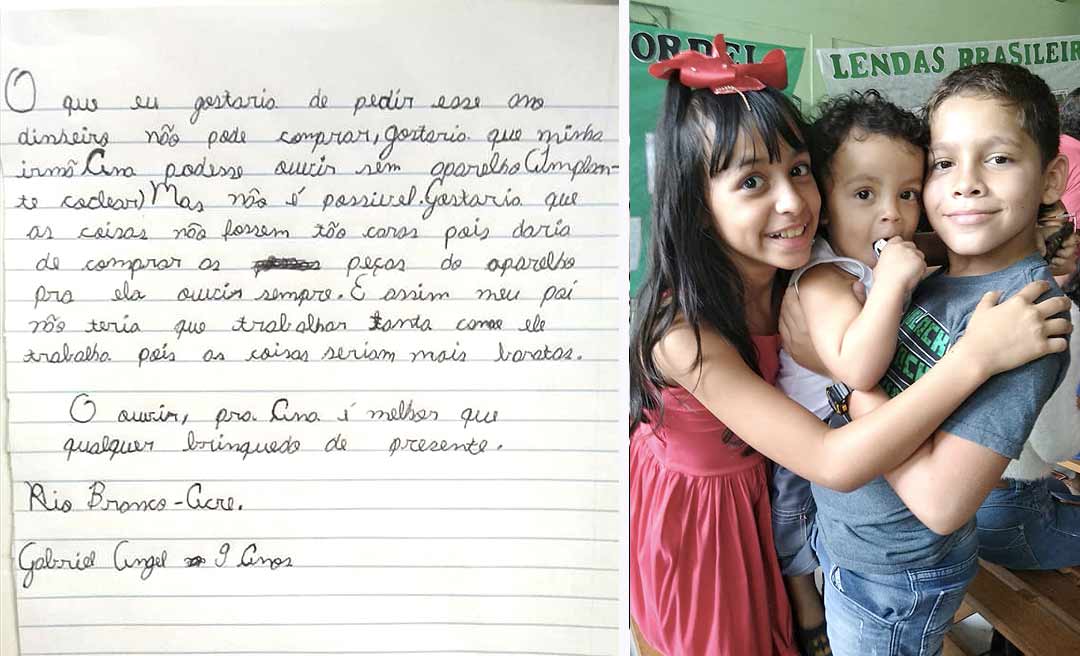 O que eu gostaria de pedir esse ano
dinheiro não pode comprar, gostaria que minha
irmã Ana podesse ouvir sem aparelho (implan-
te coclear) Mas não é possivel. Gostaria que
as coisas não fossem tão caras pois daria
de comprar as peças do aparelho
pra ela ouvir sempre. E assim meu pai
não teria que trabalhar tanda como ele
trabalha pois as coisas seriam mais baratas.
O ouvir, pra Ana é melhor que
qualquer brinquedo de presente.
Rio Branco - Acre.
Gabriel Angel 9 Anos
ORDEL
LENDAS BRASILEIR
BLACK
BLACK